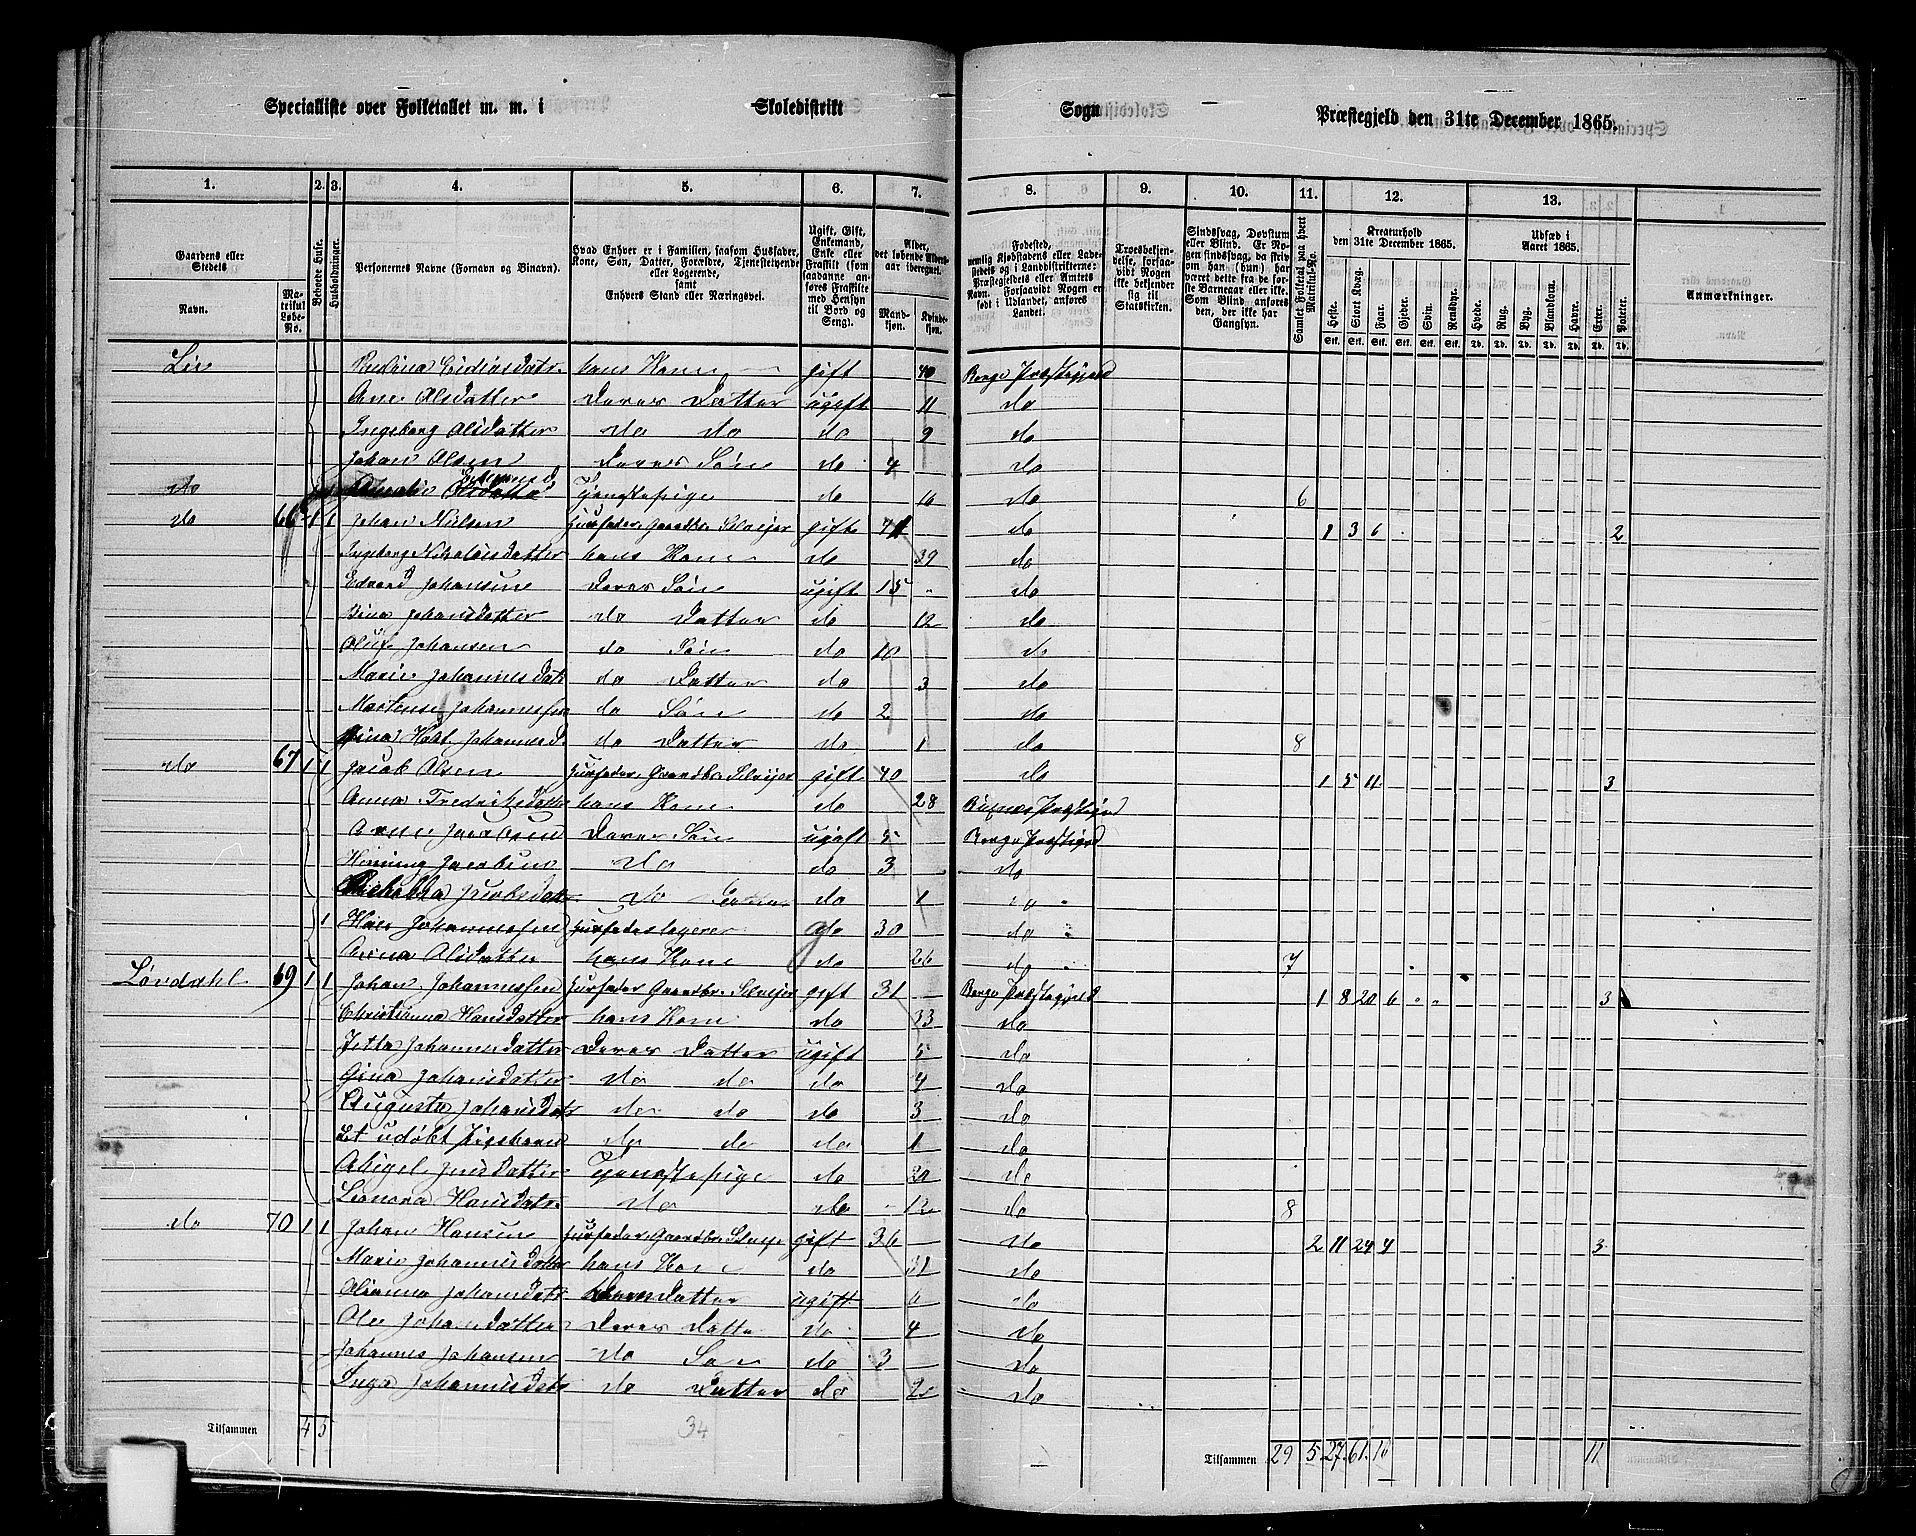 Specialliste over Folketallet m. m. i Skoledistrikt Sogn Præstegjeld den 31te December 1865.
1. 2. 3. 4. 5. 6. 7. 8. 9. 10. 11. 12. 13.
Gaardens eller Stedets Navn. Matrikul Løbe-No. Beboede Huse. Husholdninger. Personernes Navne (Fornavn og Binavn). Hvad Enhver er i Familien, saasom Husfader, Kone, Søn, Datter, Forældre, Tjenestetyende eller Logerende, samt Enhvers Stand eller Næringsvei. Ugift, Gift, Enkemand, Enke eller Fraskilt (som saadanne anføres Fraskilte med Hensyn til Bord og Seng). Alder, det løbende Aldersaar iberegnet. Mandkjøn. Kvindekjøn.
Fødested, nemlig Kjøbstadens eller Ladestedets og i Landdistrikterne: Præstegjeldets eller Amtets Navn. Forsaavidt Nogen er født i Udlandet, anføres Landet. Troesbekjendelse, forsaavidt Nogen ikke bekjender sig til Statskirken. Sindssvag, Døvstum eller Blind. Er Nogen sindssvag, da skrives om han (hun) har været dette fra de første Barneaar eller ikke. Som Blind anføres den, der ikke har Gangsyn. Samlet Folketal paa hvert Matrikul-No. Kreaturhold den 31te December 1865. Heste. Stort Kvæg. Faar. Gjeder. Svin. Rensdyr. Udsæd i Aaret 1865. Hvede. Rug. Byg. Blandkorn. Havre. Erter. Poteter. Anmærkninger.
Lie hans Kone gift 40 Borge Præstegjeld
Ane Olsdatter Deres Datter ugift 11 do
Ingeborg Olsdatter do do do 9 do
Johan Olsen Deres Søn do 4 do
do Tjenestepige do 16 do 6
do 66 1 1 Johan Nielsen Husfader, Gaardbr. Selveier gift 41 do 1 3 6 2
Ingeborg Nikolaisdatter hans Kone do 39 do
Edvard Johansen Deres Søn ugift 15 do
Bina Johansdatter do Datter do 12 do
Oluf Johansen do Søn do 10 do
Marie Johannesdatr do Datter do 3 do
Johannessen do Søn do 2 do
Gina Johannesd. do Datter do 1 do 8
do 67 1 1 Jacob Olsen Husfader, Gaardbr. Selveier gift 40 do 1 5 11 3
Anna Fredriksdattr hans Kone do 28 Buksnes Præstegjeld
Jacobsen Deres Søn ugift 5 Borge Præstegjeld
Henning Jacobsen do do 3 do
Jacobsdatr do Datter do 1 do
1 Johannessen Husfader logerer do 30 do
Olsdatter hans Kone do 26 do 7
Løvdahl 69 1 1 Johan Johannessen Husfader Gaardbr. Selveier gift 31 Borge Præstegjeld 1 8 20 6 3
Christianna Hansdatter hans Kone do 33 do
Jetta Johannesdatter Deres Datter ugift 5 do
Gina Johansdatter do do do 4 do
Augusta Johansdatr do do do 3 do
Et udøbt Pigebarn do do do 1 do
Abigel Jensdatter Tjenestepige do 20 do
Leonora Hansdatr. do do 12 do 8
do 70 1 1 Johan Hansen Husfader, Gaardbr. Selveier gift 36 do 2 11 24 4 3
Marie Johannesdatter hans Kone do 31 do
Johansdatr Datter ugift 6 do
Johansdatter Deres Datter do 4 do
Johannes Johansen do Søn do 3 do
Inga Johannesdatr do Datter do 2 do
Tilsammen 4 5 34
Tilsammen 29 5 27 61 10 11